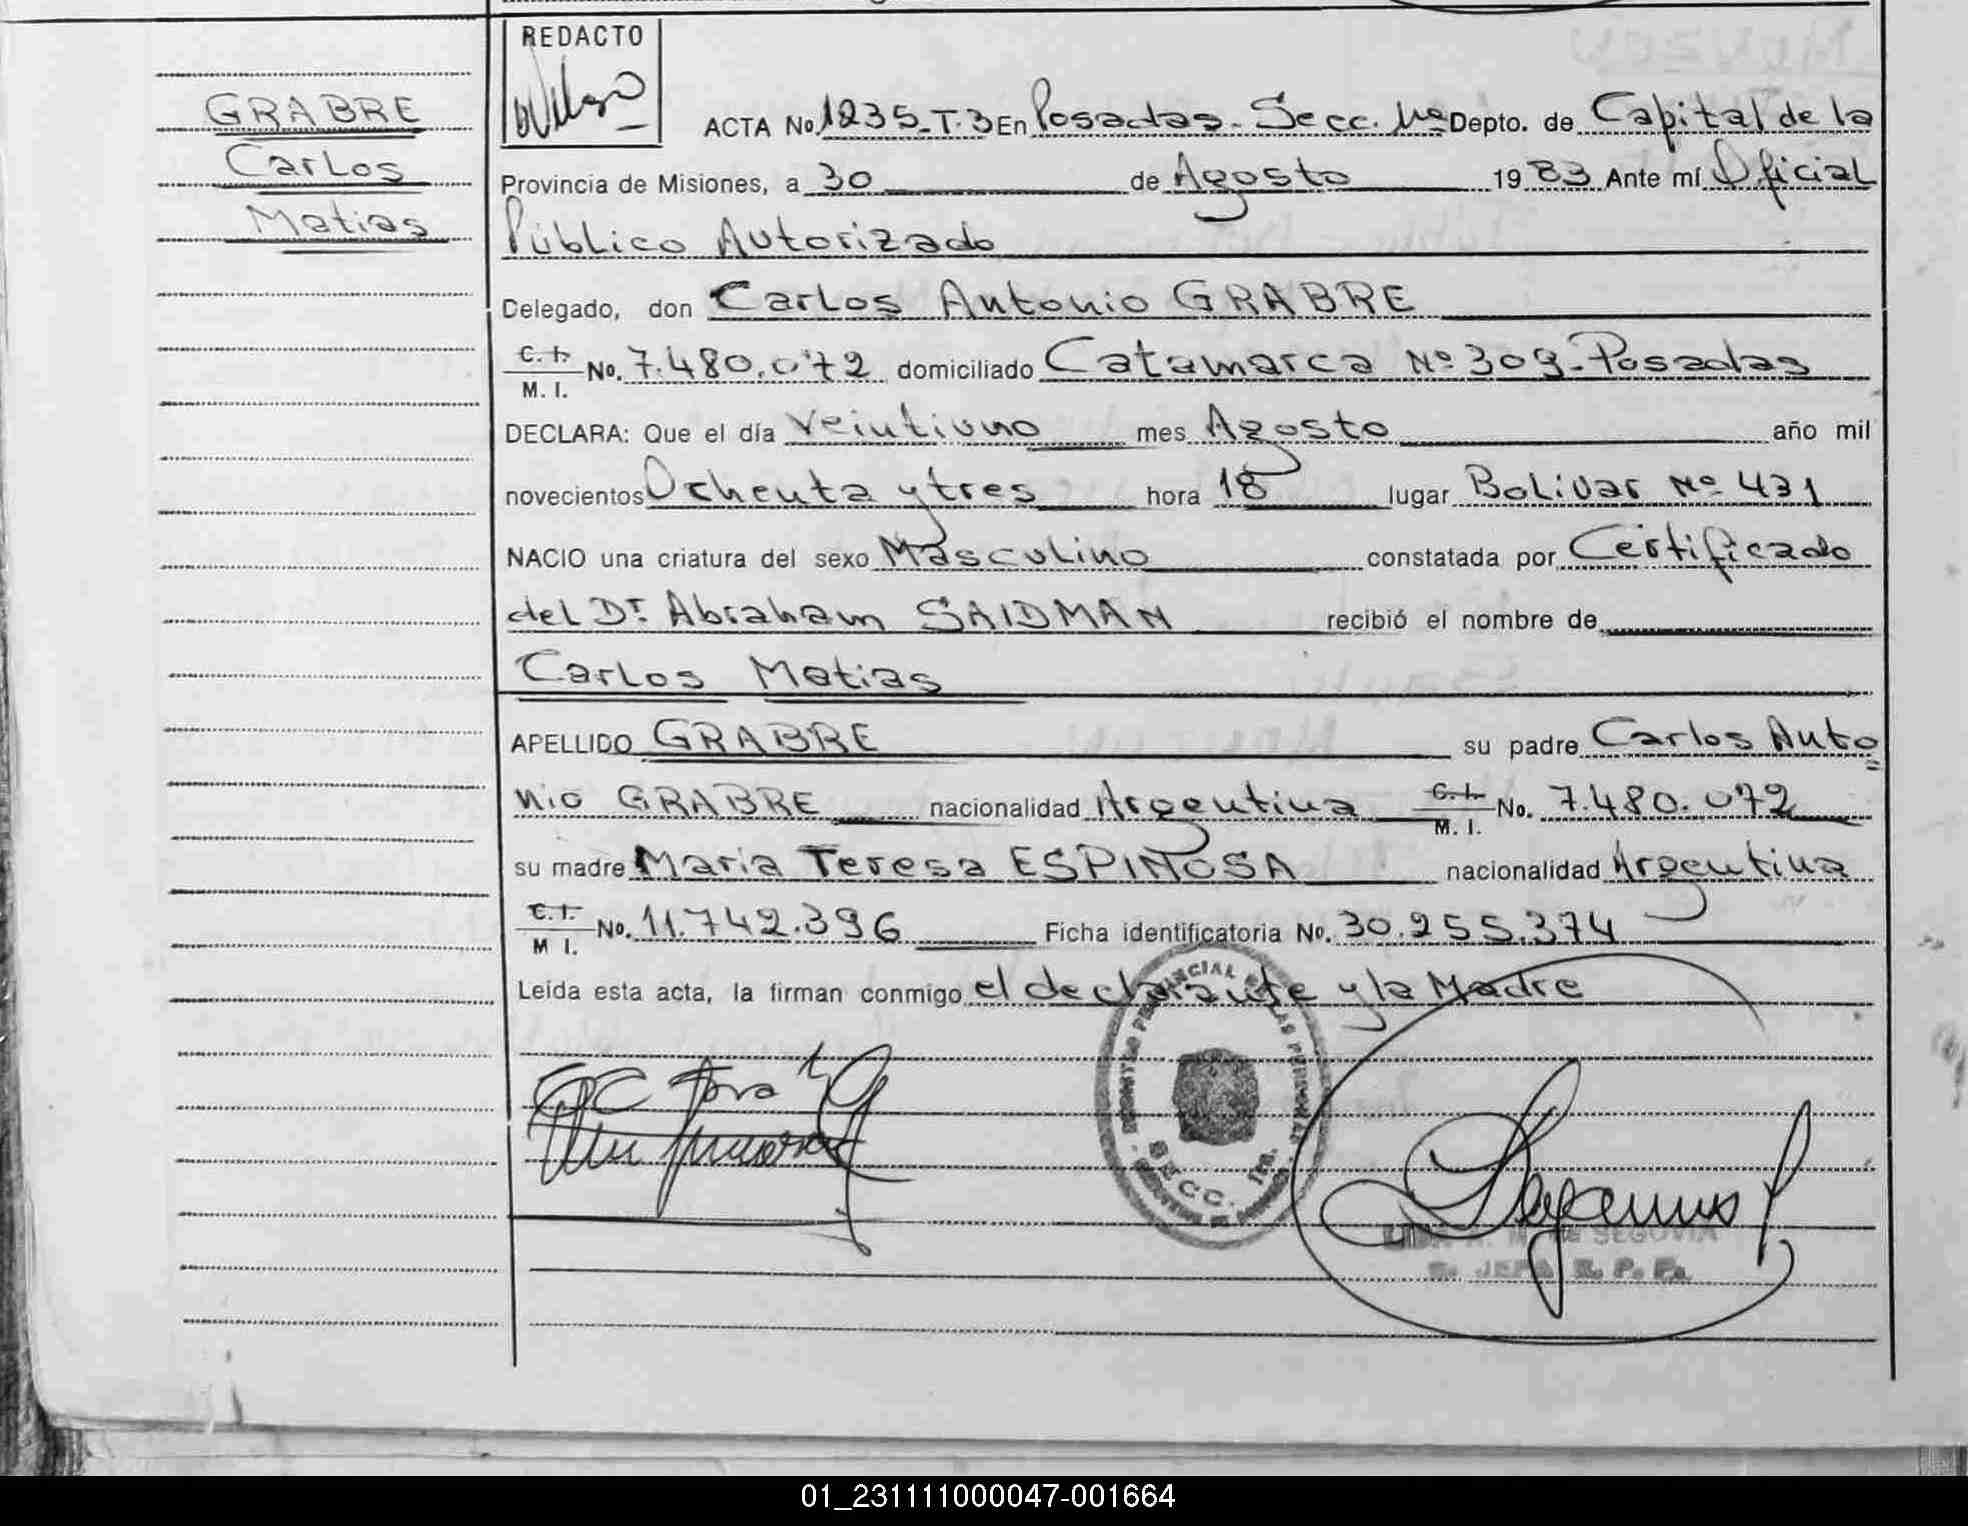 GRABRE
Carlos
Matias
REDACTO
ACTA No. 1235-T.3 En Posadas - Secc. 1ra Depto. de Capital de la
Provincia de Misiones, a 30 de Agosto 1983 Ante mí Oficial
Público Autorizado
Delegado, don Carlos Antonio GRABRE
C. I. No. 7.480.072 domiciliado Catamarca Nº 309 - Posadas
M. I.
DECLARA: Que el día Veintiuno mes Agosto año mil
novecientos Ochenta y tres hora 18 lugar Bolivar Nº 431
NACIO una criatura del sexo Masculino constatada por Certificado
del Dr. Abraham SAIDMAN recibió el nombre de
Carlos Matias
APELLIDO GRABRE su padre Carlos Anto
nio GRABRE nacionalidad Argentina C. I. No. 7.480.072
M. I.
su madre Maria Teresa ESPINOSA nacionalidad Argentina
C. I. No. 11.742.396 Ficha identificatoria No. 30.255.374
M I.
Leída esta acta, la firman conmigo el declarante y la Madre
SECC. 1ra.
DE SEGOVIA
JEFA R. P. P.
01_231111000047-001664